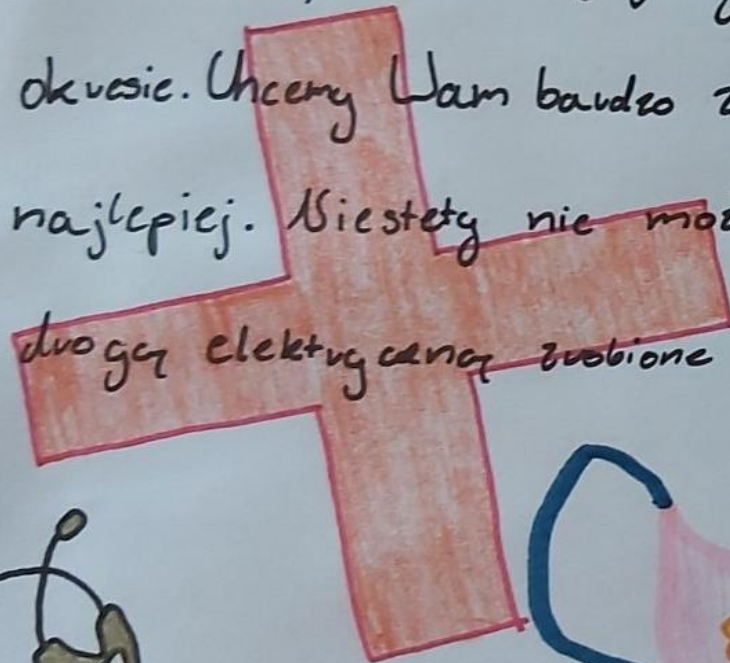 okresie. Chcemy Wam bardzo z
najlepiej. Niestety nie moż
drogą elektryczną zrobione